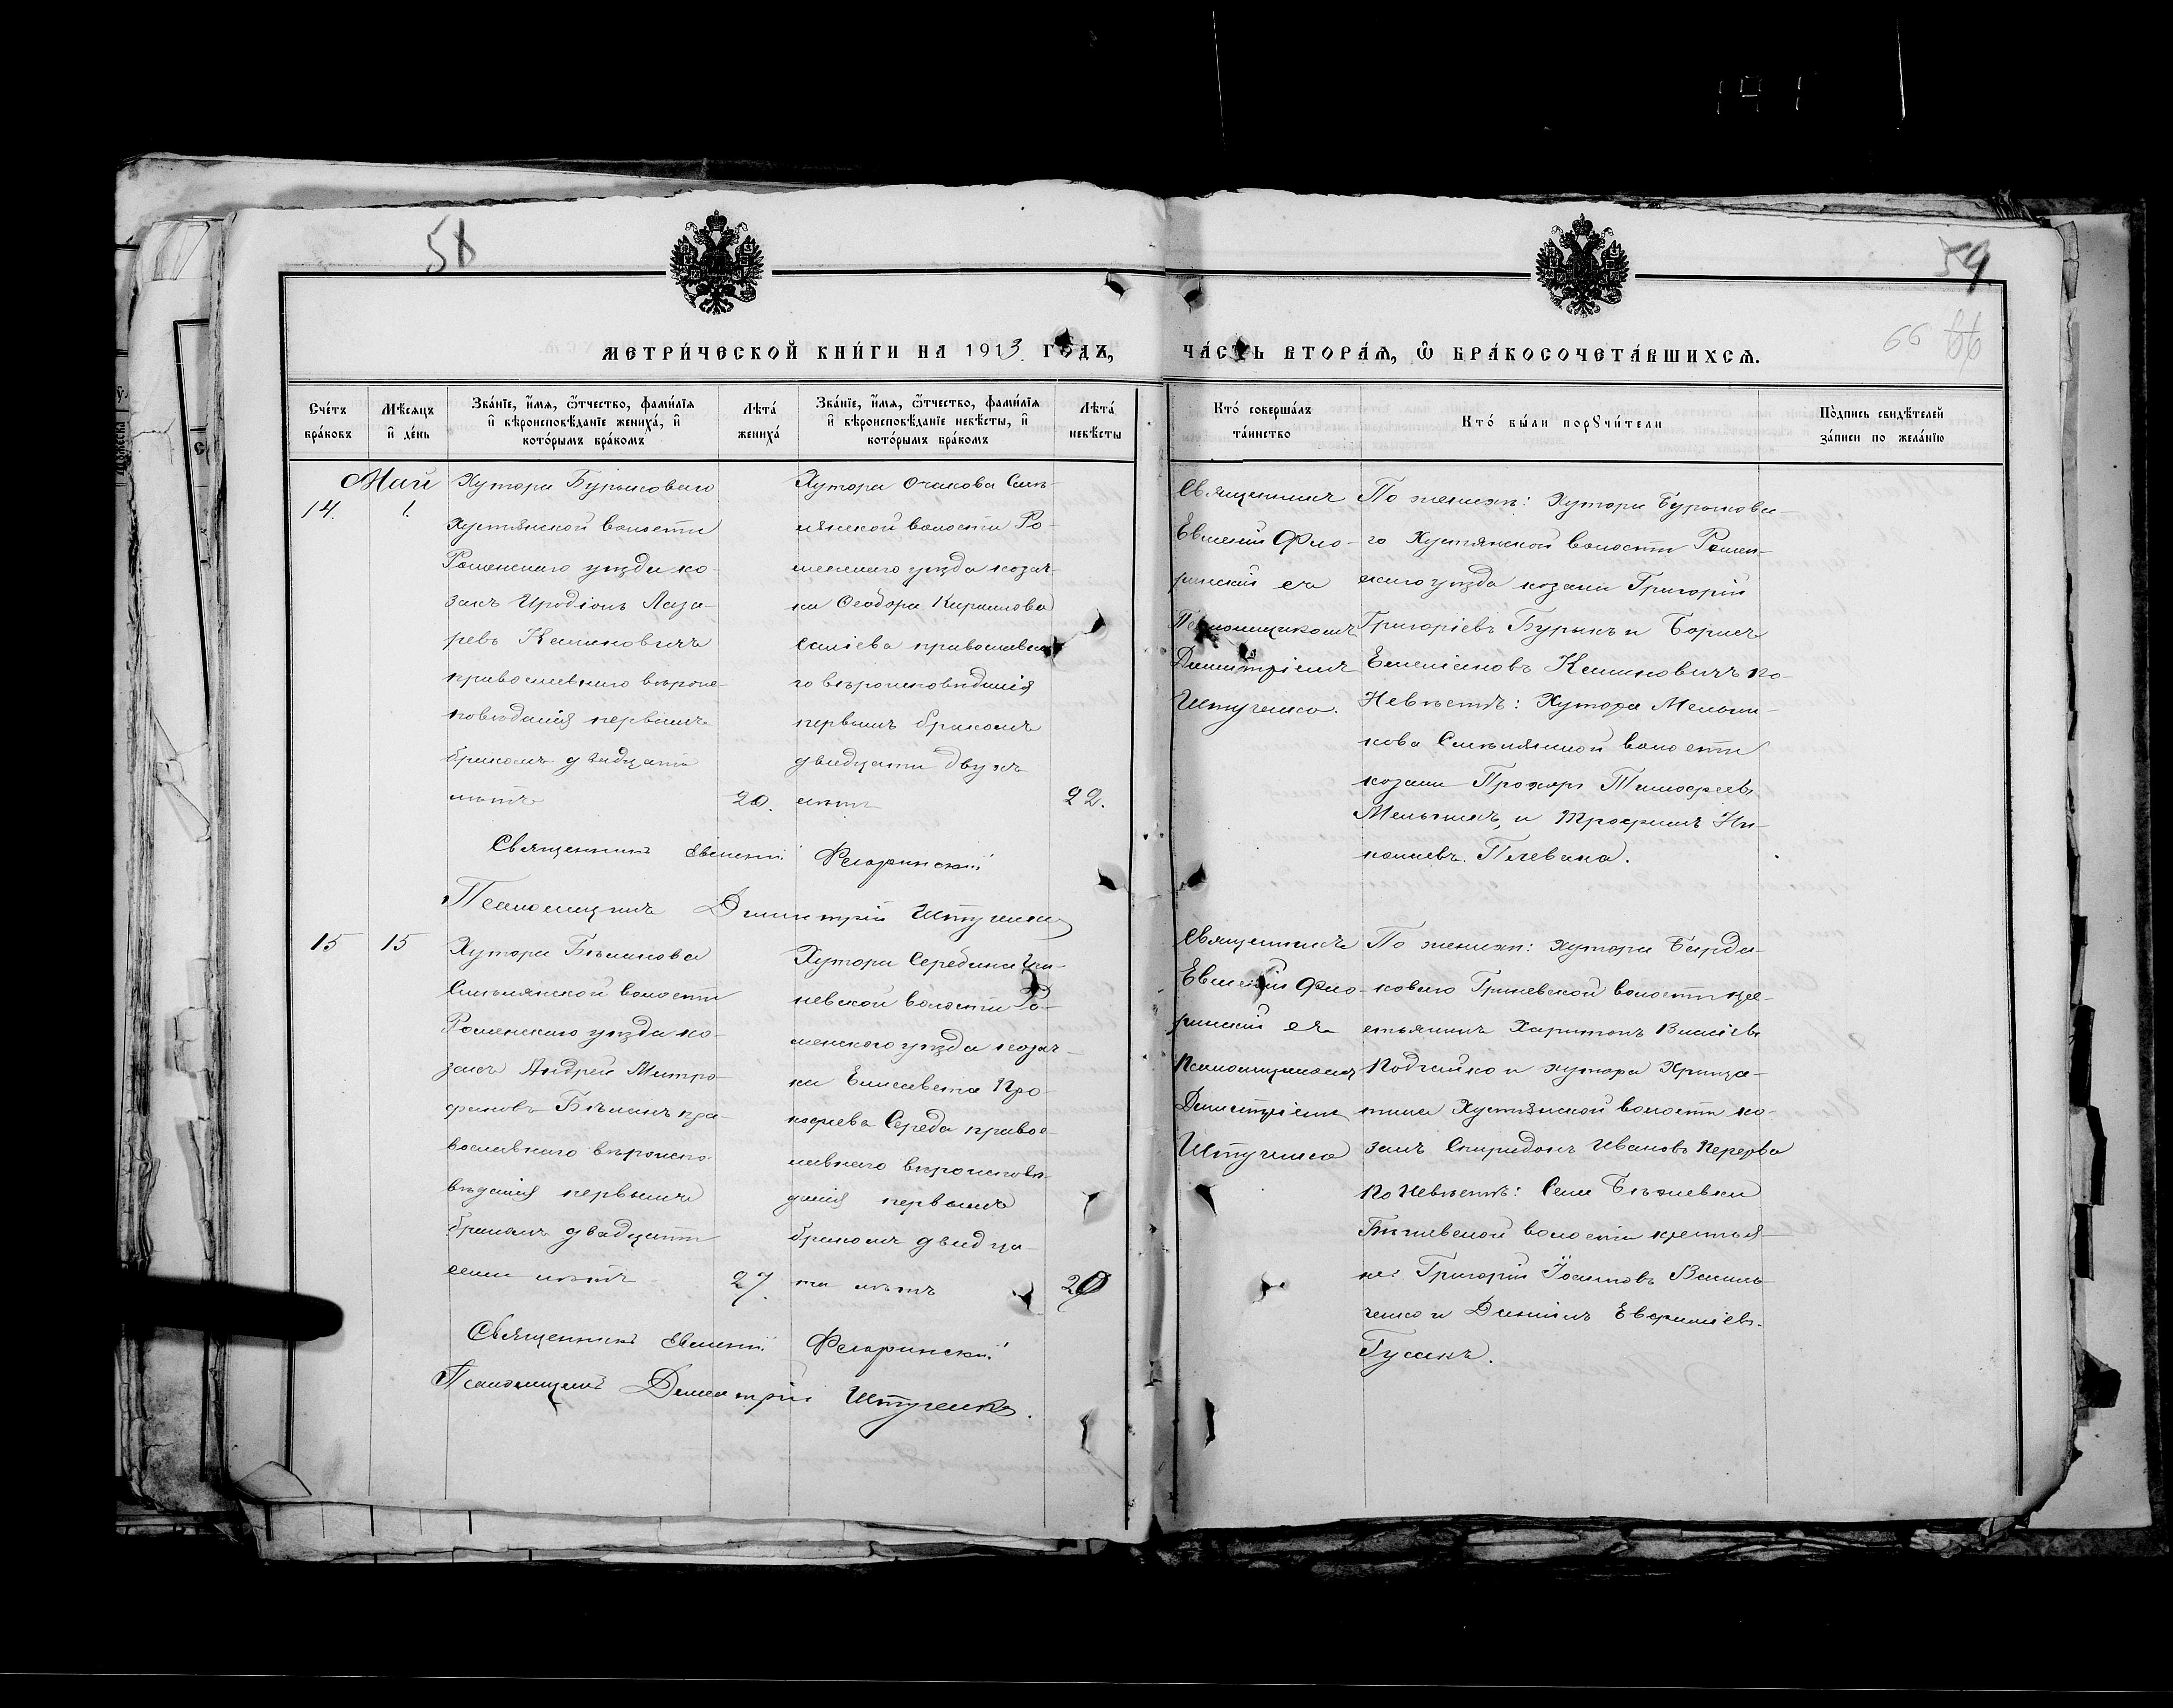 58
59
66 66
МЕТРИ́ЧЕСКОЙ КНИ́ГИ НА 1913 ГОДЪ,
ЧА́СТЬ ВТОРА́Ѧ, Ѽ БРА́КОСОЧЕТА́ВШИХСѦ.
Сче́тъ бра́ковъ
Мѣ́сѧцъ и҆ де́нь
Зва́нїе, и҆́мѧ, ѻ҆́тчество, фами́лїѧ
и҆ вѣроисповѣ́данїе жениха̀, и҆
кото́рымъ бра́комъ
Лѣта̀ жениха̀
Зва́нїе, и҆́мѧ, ѻ҆́тчество, фами́лїѧ
и҆ вѣроисповѣ́данїе невѣ́сты, и҆
кото́рымъ бра́комъ
Лѣта̀ невѣ́сты
Кто̀ соверша́лъ та́инство
Кто̀ бы́ли порꙋчи́тели
По́дпись свидѣ́телей за́писи по жела́нїю
Май
14. 1.
Хутора Бурыкового
Хустянской волости
Роменскаго уѣзда ко-
закъ Иродіонъ Лаза-
ревъ Калиновичъ
православнаго вѣроис-
повѣданія первымъ
бракомъ двадцати
лѣтъ 20.
Хутора Очакова Смѣ-
лянской волости Ро-
менскаго уѣзда козач-
ка Ѳеодора Кириллова
православна-
го вѣроисповѣданія
первымъ бракомъ
двадцати двухъ
лѣтъ 22.
Священникъ
Евгеній Фло-
ринскій съ
Псаломщикомъ
Димитріемъ
Штученко.
По женихѣ: Хутора Бурыково-
го Хустянской волости Ромен-
скаго уѣзда козаки Григорій
Григоріевъ Бурыкъ и Борисъ
Емеліановъ Калиновичъ по
Невѣстѣ: Хутора Мельни-
кова Смѣлянской волости
козаки Прохоръ Тимоѳеевъ
Мельникъ, и Трофимъ Ни-
колаевъ Плевака.
Священникъ Евгеній Флоринскій
Псаломщикъ Димитрій Штученко
15 15
Хутора Бѣликова
Смѣлянской волости
Роменскаго уѣзда ко-
закъ Андрей Митро-
фановъ Бѣликъ пра-
вославнаго вѣроиспо-
вѣданія первымъ
бракомъ двадцати
семи лѣтъ 27.
Хутора Середина Гри-
невской волости Ро-
менского уѣзда козач-
ка Елисавета Про-
кофіева Середа правос-
лавнаго вѣроисповѣ-
данія первымъ
бракомъ двадца-
ти лѣтъ 20
Священникъ
Евгеній Фло-
ринскій съ
Псаломщикомъ
Димитріемъ
Штученко
По женихѣ: хутора Барда-
кового Гриневской волости кре-
стьянинъ Харитонъ Василіевъ
и хутора
Хустянской волости ко-
закъ Спиридонъ Ивановъ Перерва
по Невѣстѣ: Села Бѣжевки
волости крестья-
не: Григорій Іосифовъ Василь-
ченко и Даніилъ Евфиміевъ
Гусакъ.
Священникъ Евгеній Флоринскій
Псаломщикъ Димитрій Штученко.